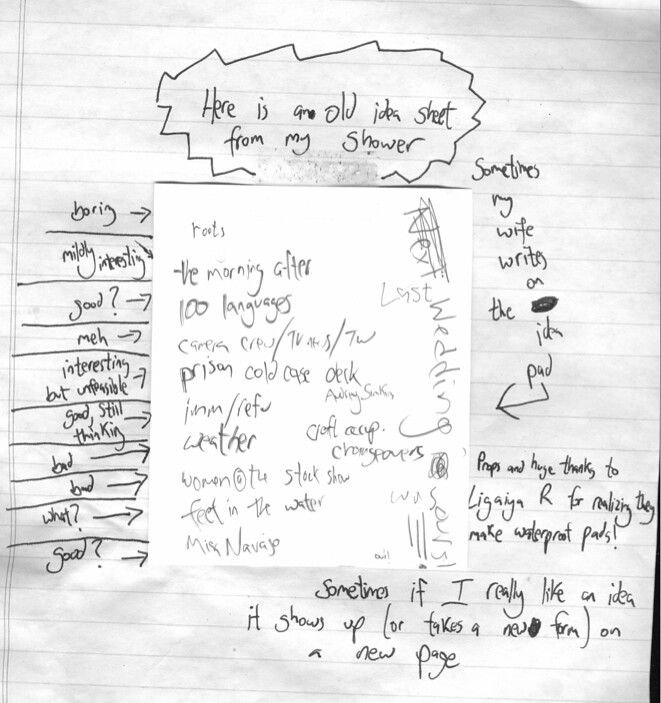 Here is an old idea sheet
from my shower
Sometimes
my
wife
writes
on
the
idea
pad
boring
mildly interesting
good?
meh
interesting
but unfeasible
good, still
thinking
bad
bad
what?
good?
roots
-ve morning after
100 languages
camera crew/
prison cold case deck
imm/refu
weather
women@the stock show
feet in the water
Miss Navajo
craft occup.
changeovers
Next
Last
Wedding
was
ours!
Props and huge thanks to
Ligaiya R for realizing they
make waterproof pads!
Sometimes if I really like an idea
it shows up (or takes a new form) on
a new page